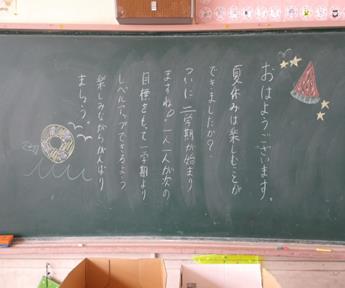 おはようございます。
夏休みは楽しむことが
できましたか?
ついに二学期が始まり
ますね。一人一人が次の
目標をもって一学期より
レベルアップできるよう
楽しみながらがんばり
ましょう。